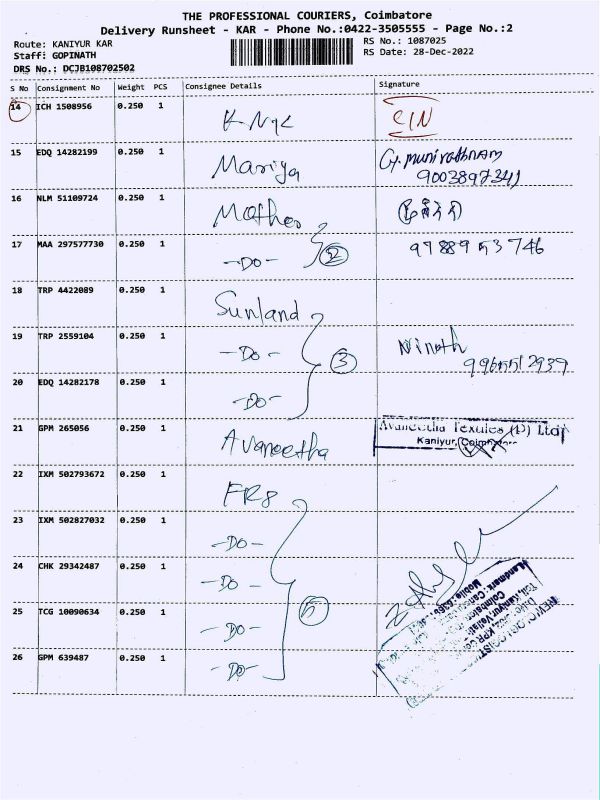 THE PROFESSIONAL COURIERS, Coimbatore
Delivery Runsheet - KAR - Phone No.:0422-3505555 - Page No.:2
Route: KANIYUR KAR
RS No.: 1087025
Staff: GOPINATH
RS Date: 28-Dec-2022
DRS No.: DCJB108702502
S No Consignment No Weight PCS Consignee Details Signature
14 ICH 1508956 0.250 1
15 EDQ 14282199 0.250 1 Mariya G. munirathnam
9003897341
16 NLM 51109724 0.250 1 Mother
17 MAA 297577730 0.250 1 -Do- 2 9788953746
18 TRP 4422089 0.250 1 Sunland
19 TRP 2559104 0.250 1 -Do- 3 Vinoth
9965512939
20 EDQ 14282178 0.250 1 -Do-
21 GPM 265056 0.250 1 Avaneetha Avaneetha Textiles (P) Ltd
Kaniyur, Coimbatore
22 IXM 502793672 0.250 1 FR8
23 IXM 502827032 0.250 1 -Do-
24 CHK 29342487 0.250 1 -Do-
25 TCG 10090634 0.250 1 -Do- 5
26 GPM 639487 0.250 1 -Do-